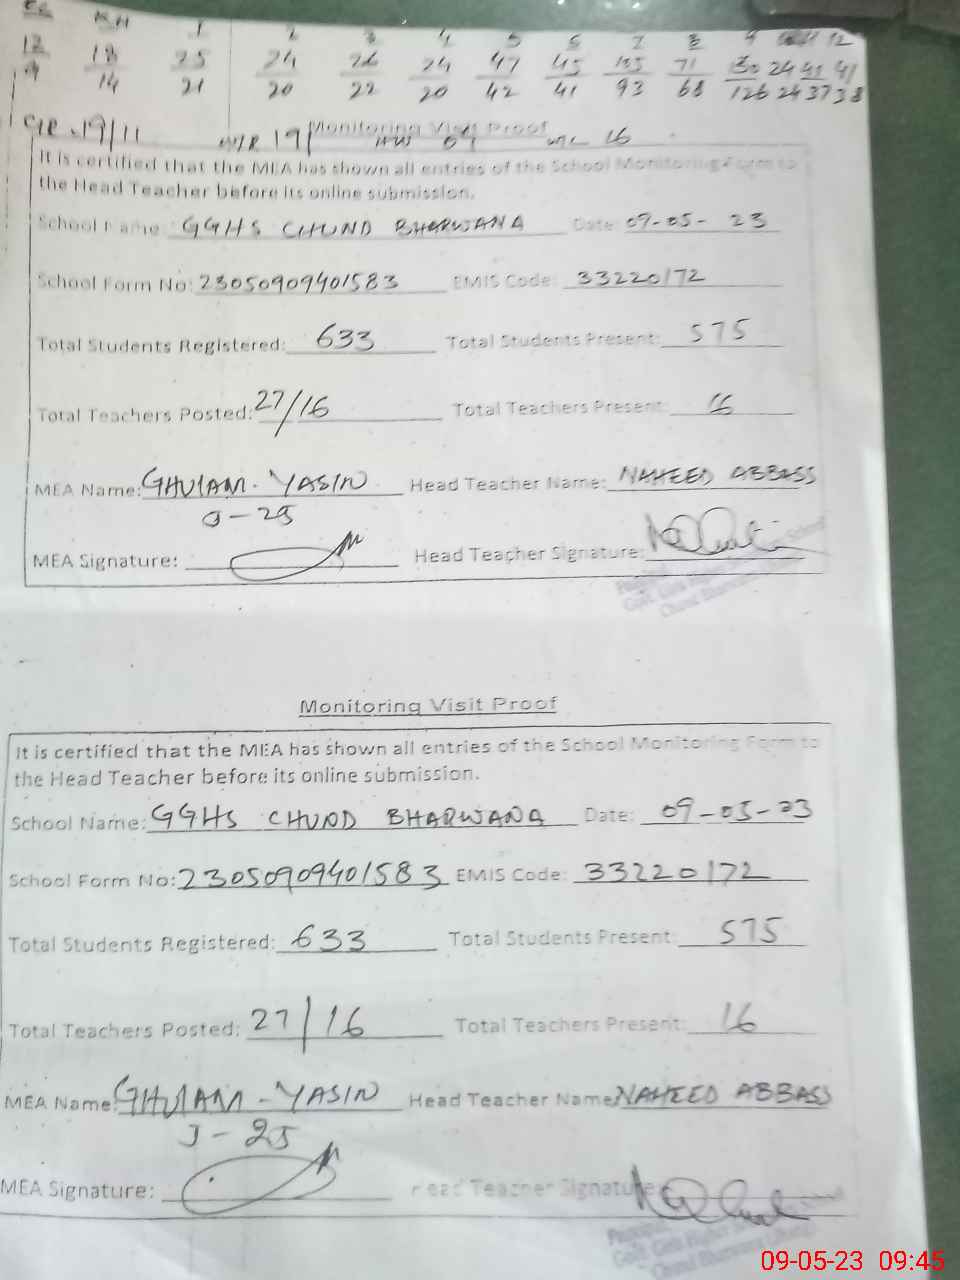 1 2 3 4 5 6 7 8 9 12
12 18 25 24 26 24 47 45 105 71 30 24 41 41
9 14 21 20 22 20 42 41 93 68 126 24 37 38
19/11 19/ 16
Monitoring Visit Proof
It is certified that the MEA has shown all entries of the School Monitoring Form to
the Head Teacher before its online submission.
School Name GGHS CHUND BHARWANA Date: 09-05-23
School Form No: 23050909401583 EMIS Code: 33220172
Total Students Registered: 633 Total Students Present: 575
Total Teachers Posted: 27/16 Total Teachers Present: 16
MEA Name: GHULAM. YASIN Head Teacher Name: NAHEED ABBASS
J-25
MEA Signature: Head Teacher Signature:
Govt. Girls Higher School
Chund Bharwana
Monitoring Visit Proof
It is certified that the MEA has shown all entries of the School Monitoring Form to
the Head Teacher before its online submission.
School Name: GGHS CHUND BHARWANA Date: 09-05-23
School Form No: 23050909401583 EMIS Code: 33220172
Total Students Registered: 633 Total Students Present: 575
Total Teachers Posted: 27/16 Total Teachers Present: 16
MEA Name: GHULAM - YASIN Head Teacher Name NAHEED ABBASS
J-25
MEA Signature: Head Teacher Signature
Govt. Girls Higher
09-05-23 09:45